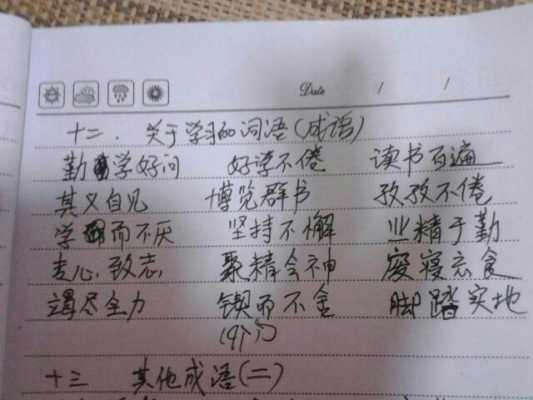 Date / /
十二.关于学习的词语(成语)
勤学好问 好学不倦 读书百遍
其义自见 博览群书 孜孜不倦
学而不厌 坚持不懈 业精于勤
专心致志 聚精会神 废寝忘食
竭尽全力 锲而不舍 脚踏实地
十三 其他成语(二)